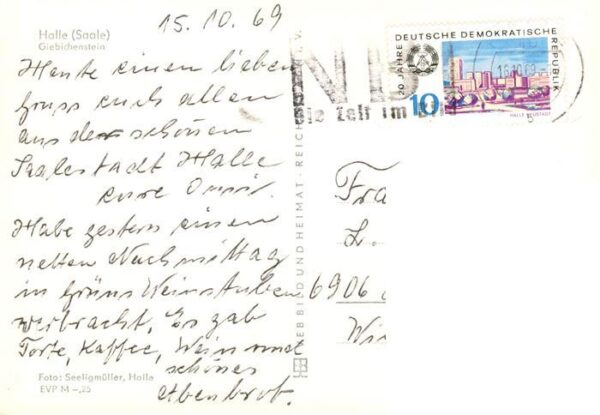 15.10.69
Halle (Saale)
Giebichenstein
Heute einen lieben
Gruss euch allen
aus der schönen
Saalestadt Halle
eure Omi.
Habe gestern einen
netten Nachmittag
in Grüns Weinstuben
verbracht, Es gab
Torte, Kaffee, Wein und
schönes
Abendbrot.
Foto: Seeligmüller, Halle
EVP M –,25
BILD UND HEIMAT · REICH
20 JAHRE DEUTSCHE DEMOKRATISCHE REPUBLIK
10
HALLE-NEUSTADT
16.10.69
Zeit im
Fra
L.
6906